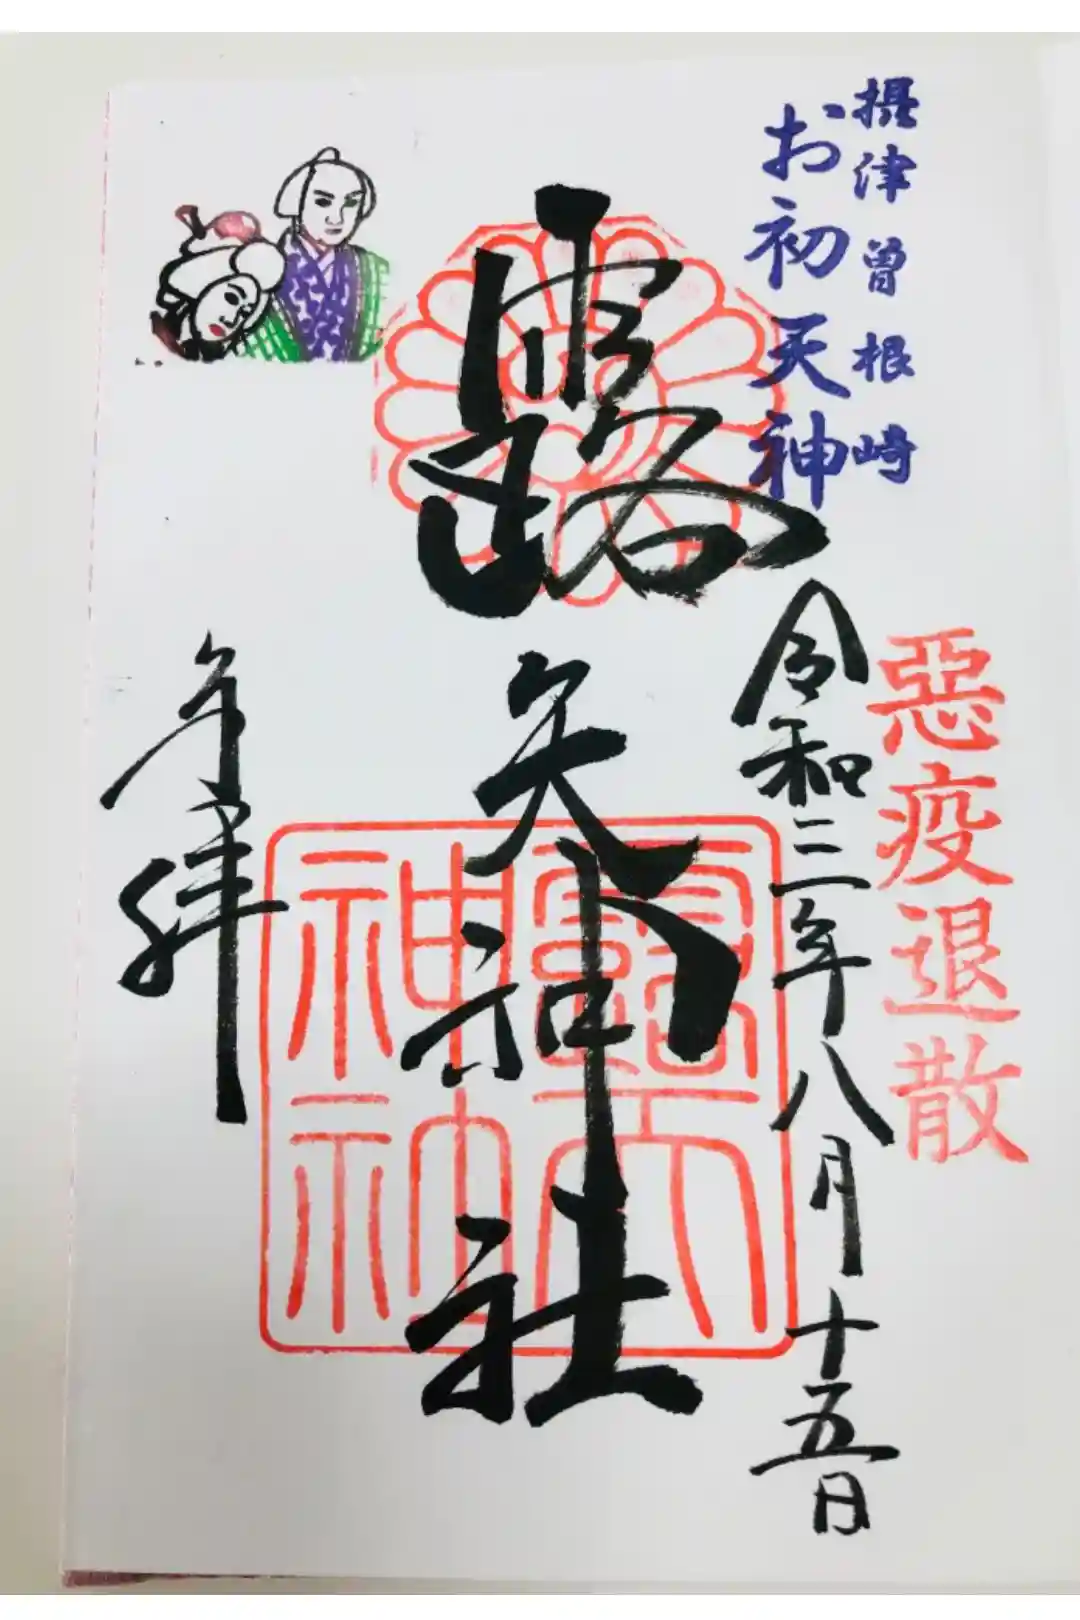 摂津曽根崎
お初天神
惡疫退散
令和三年八月十五日
露天神社
露天神社
奉拝